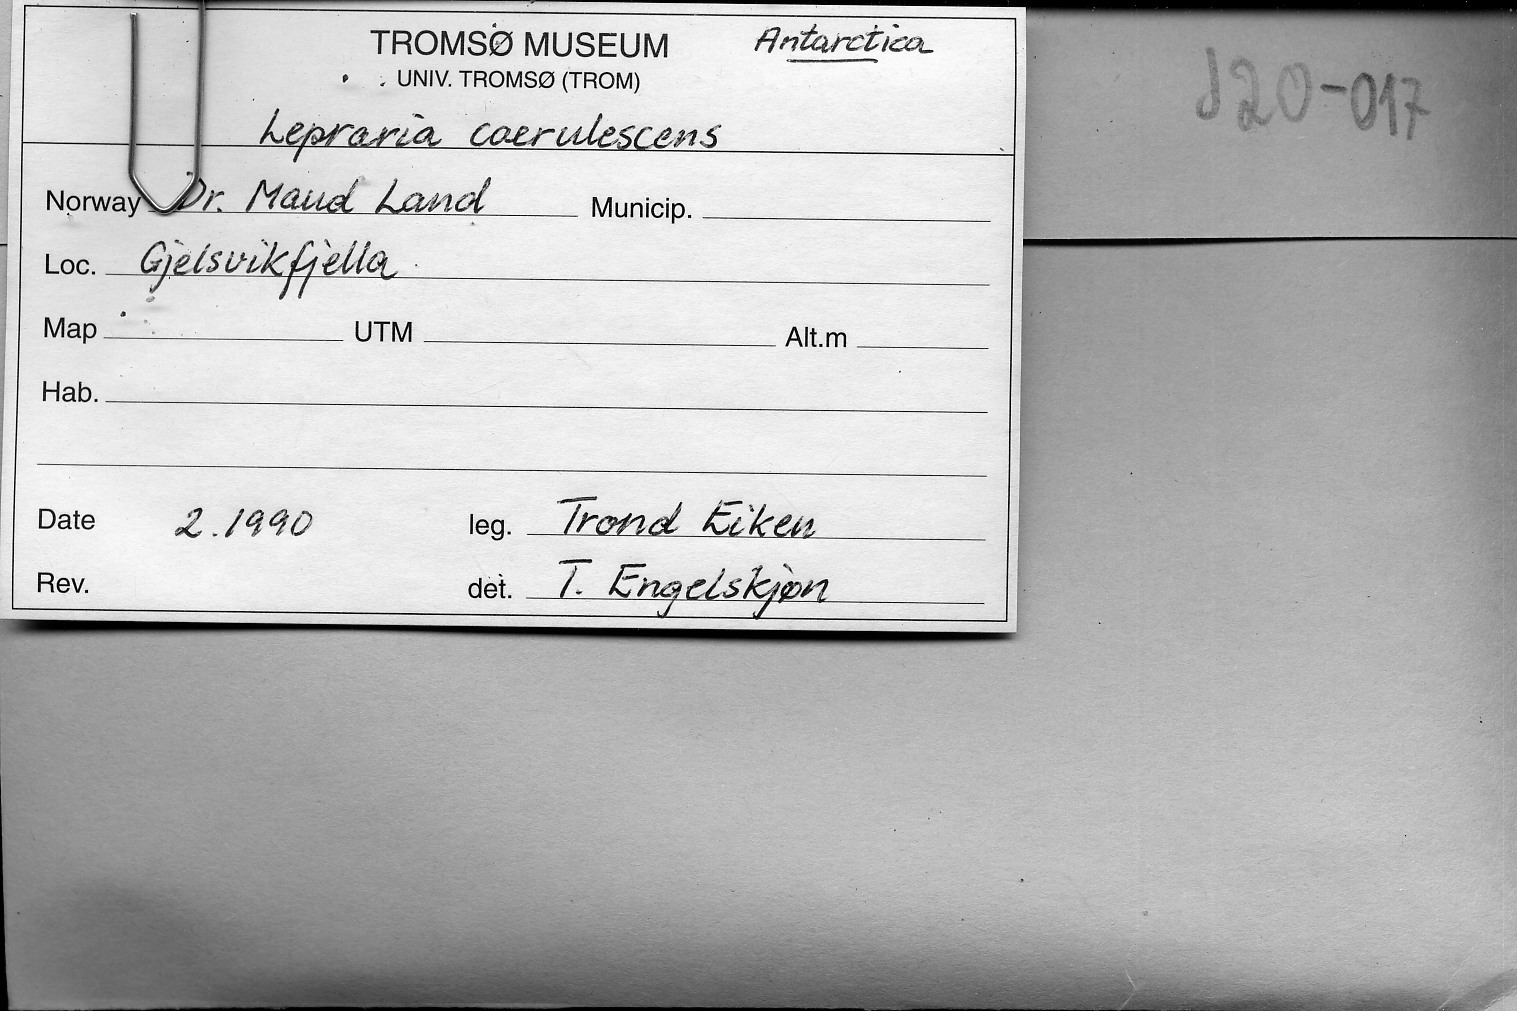 TROMSØ MUSEUM Antarctica
UNIV. TROMSØ (TROM)
J20-017
Lepraria caerulescens
Norway Dr. Maud Land Municip.
Loc. Gjelsvikfjella
Map UTM Alt.m
Hab.
Date 2.1990 leg. Trond Eiken
Rev. det. T. Engelskjøn